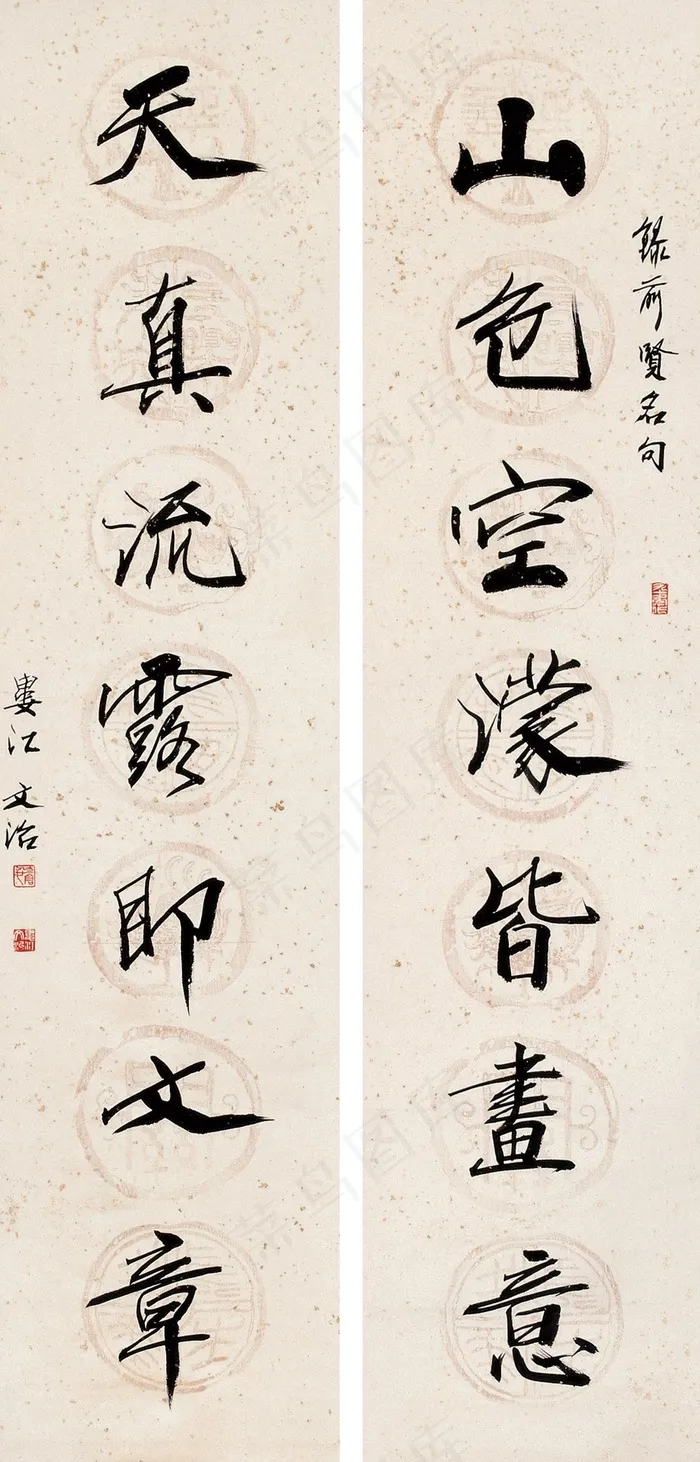 錄前賢名句
山色空濛皆畫意
天真流露即文章
婁江 文治
菜鸟图库